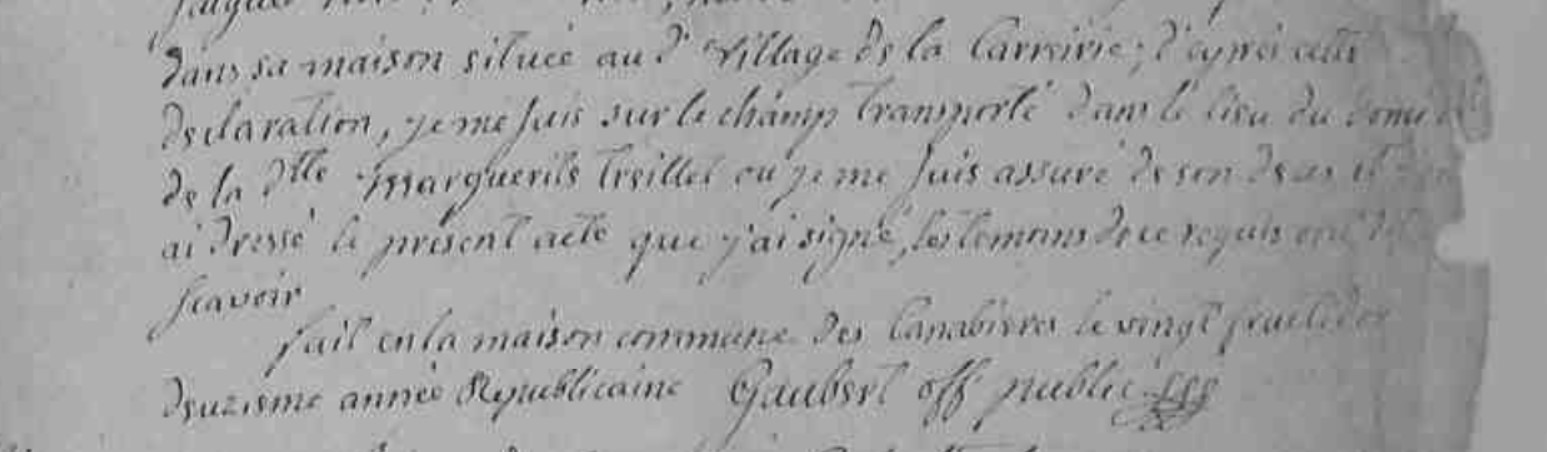 dans sa maison située au d' village de la Carreirie; d'après cette
declaration, je me suis sur le champ transporté dans le lieu du domicile
de la dlle Marguerite Treillet ou je me suis assuré de son deces et
ai dressé le present acte que j'ai signé, les temoins de ce requis ont dit
scavoir
fait en la maison commune des Canabieres le vingt fructidor
deuzieme année Republicaine Gaubert off public